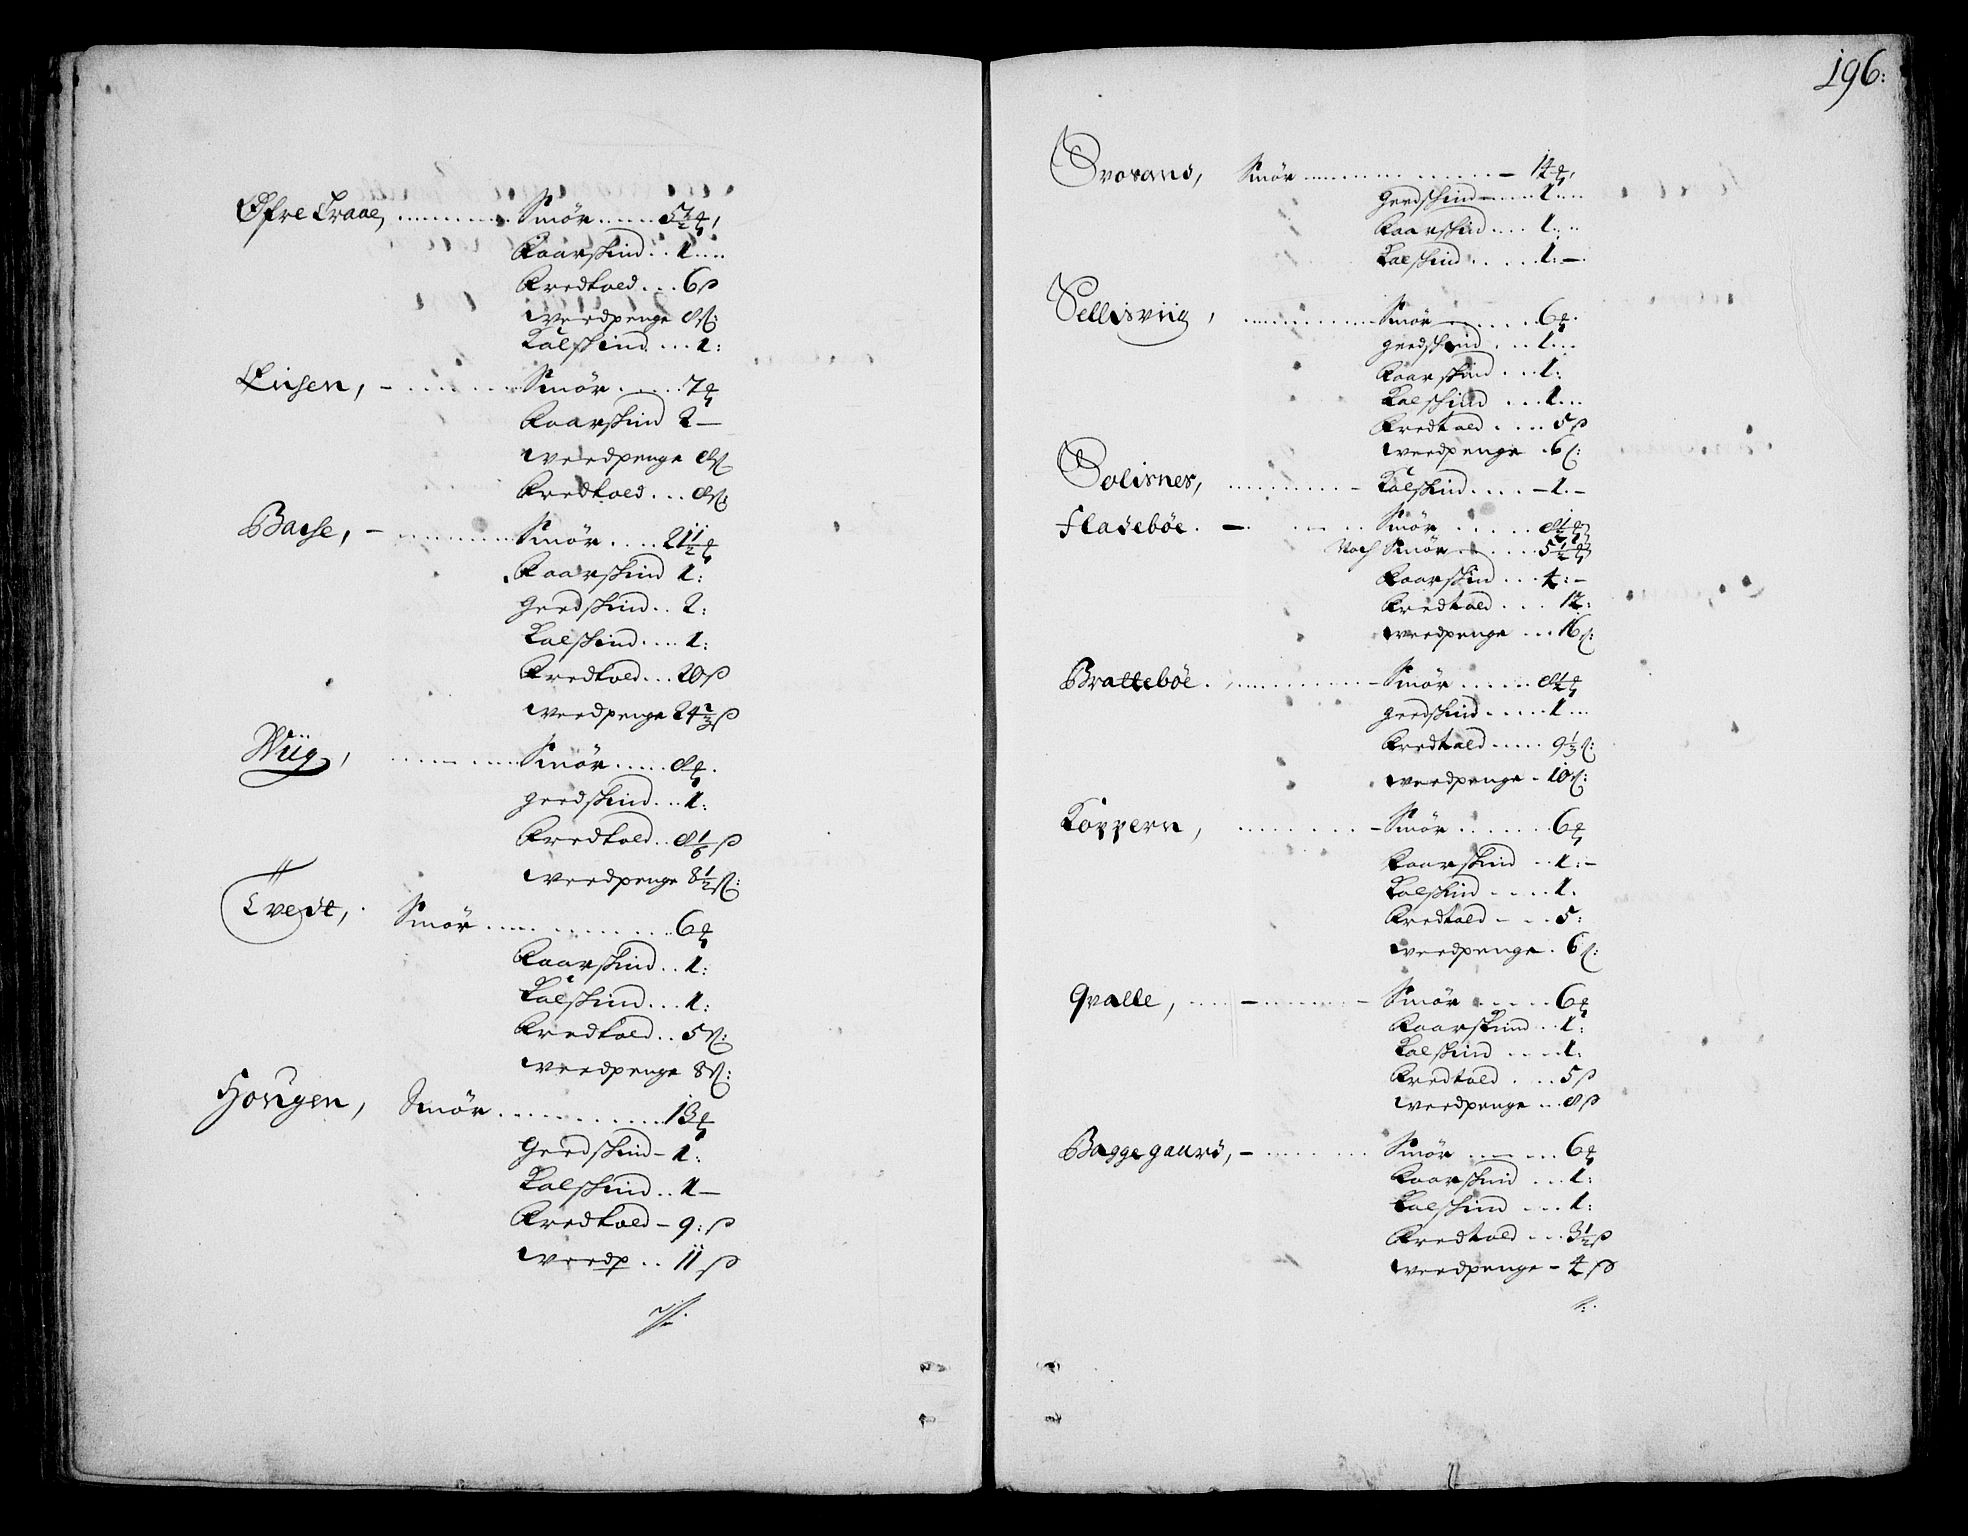 Øfre Traae, Smör 5½
Kaarskind 1
Kredtold 6 ß
weedpenge 8 ß:
Kalfskind 1:
Eirsen, Smör 7
Kaarskind 2
weedpenge 8 ß
Kredtold 8 ß:
Barse, Smör 21½
Kaarskind 1:
Geedskind 2:
Kalfskind 1:
Kredtold 20 ß
weedpenge 24⅔ ß
Wiig, Smör 8
geedskind 1:
Kredtold 8⅙ ß
weedpenge 8½ ß:
Tvedt, Smör 6
Kaarskind 1:
Kalfskind 1:
Kredtold 5 ß:
weedpenge 8 ß:
Hougen, Smör 13
Geedskind 1:
Kalfskind 1
Kredtold 9: ß
weedp 11 ß
196:
Smör 14
geedskind 1
Kaarskind 1
Kalfskind 1:
Sellisviig, Smör 6
geedskind 1
Kaarskind 1:
Kalfskind 1
Kredtold 5 ß
weedpenge 6 ß:
Solisnes, Kalfskind 1
Fladebøe Smör 8½
Noch Smör 5½
Kaarskind 4:
Kredtold 12:
weedpenge 16 ß:
Brattebøe Smör 8½
geedskind 1
Kredtold 9⅓ ß:
weedpenge 10 ß:
Koppern, Smör 6
Kaarskind 1:
Kalfskind 1
Kredtold 5:
weedpenge 6 ß:
Qvalle, Smör 6
Kaarskind 1:
Kalfskind 1:
Kredtold 5 ß
weedpenge 8 ß
Baggegaard, Smör 6
Kaarskind 1:
Kalfskind 1:
Kredtold 3½ ß
weedpenge 4 ß